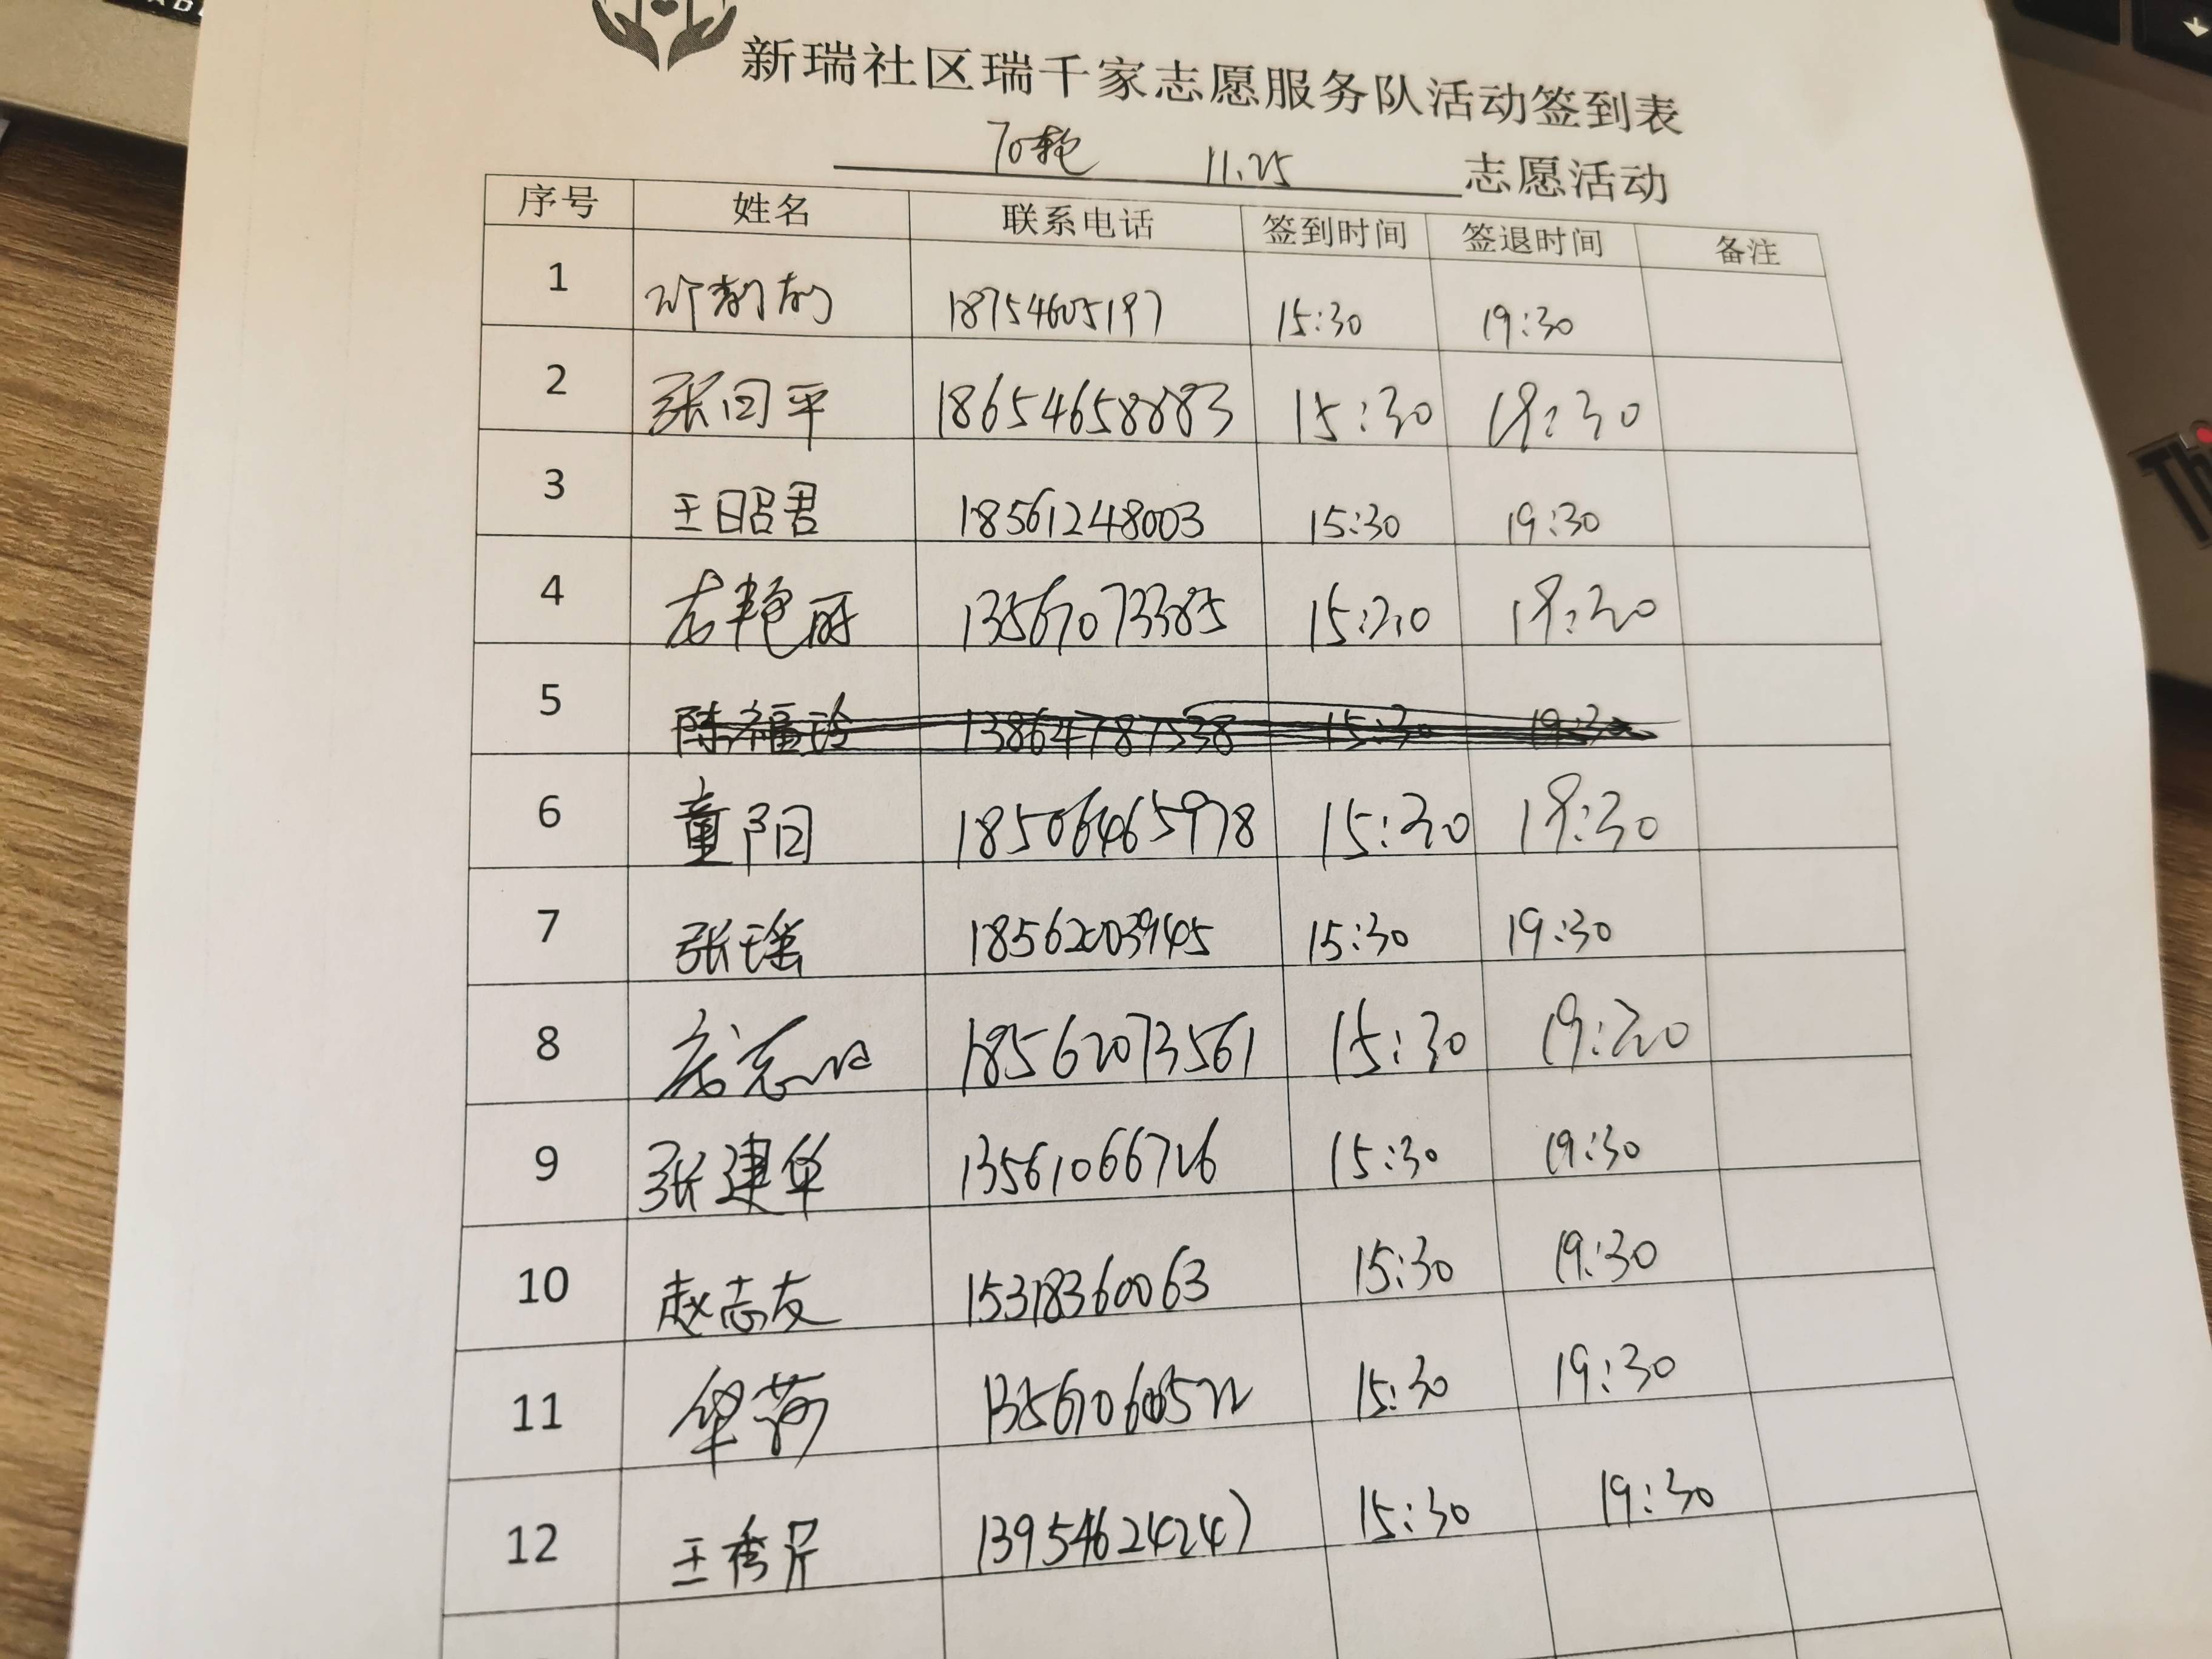 新瑞社区瑞千家志愿服务队活动签到表
70轮 11.25 志愿活动
序号 姓名 联系电话 签到时间 签退时间 备注
1 18754605197 15:30 19:30
2 张回平 18654658883 15:30 19:30
3 王昭君 18561248003 15:30 19:30
4 艳丽 13561073385 15:30 19:30
5 陈福玲 13864787538 15:30 19:30
6 童阳 18506465978 15:30 19:30
7 张瑶 18562003945 15:30 19:30
8 18562073561 15:30 19:30
9 张建华 13561066726 15:30 19:30
10 赵志友 15318360063 15:30 19:30
11 华荷 15:30 19:30
12 王秀芹 13954624247 15:30 19:30